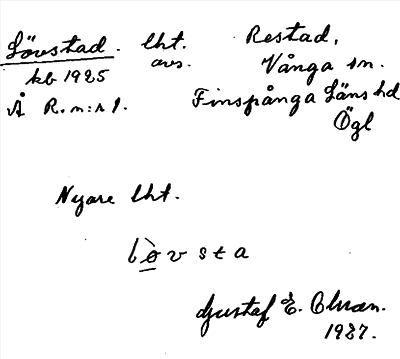 Lövstad. lht. Restad,
kb 1925 avs. Vånga sn.
Å R.n:r 1. Finspånga Läns hd
Ögl
Nyare lht.
lòvsta
Gustaf E. Olsson.
1927.